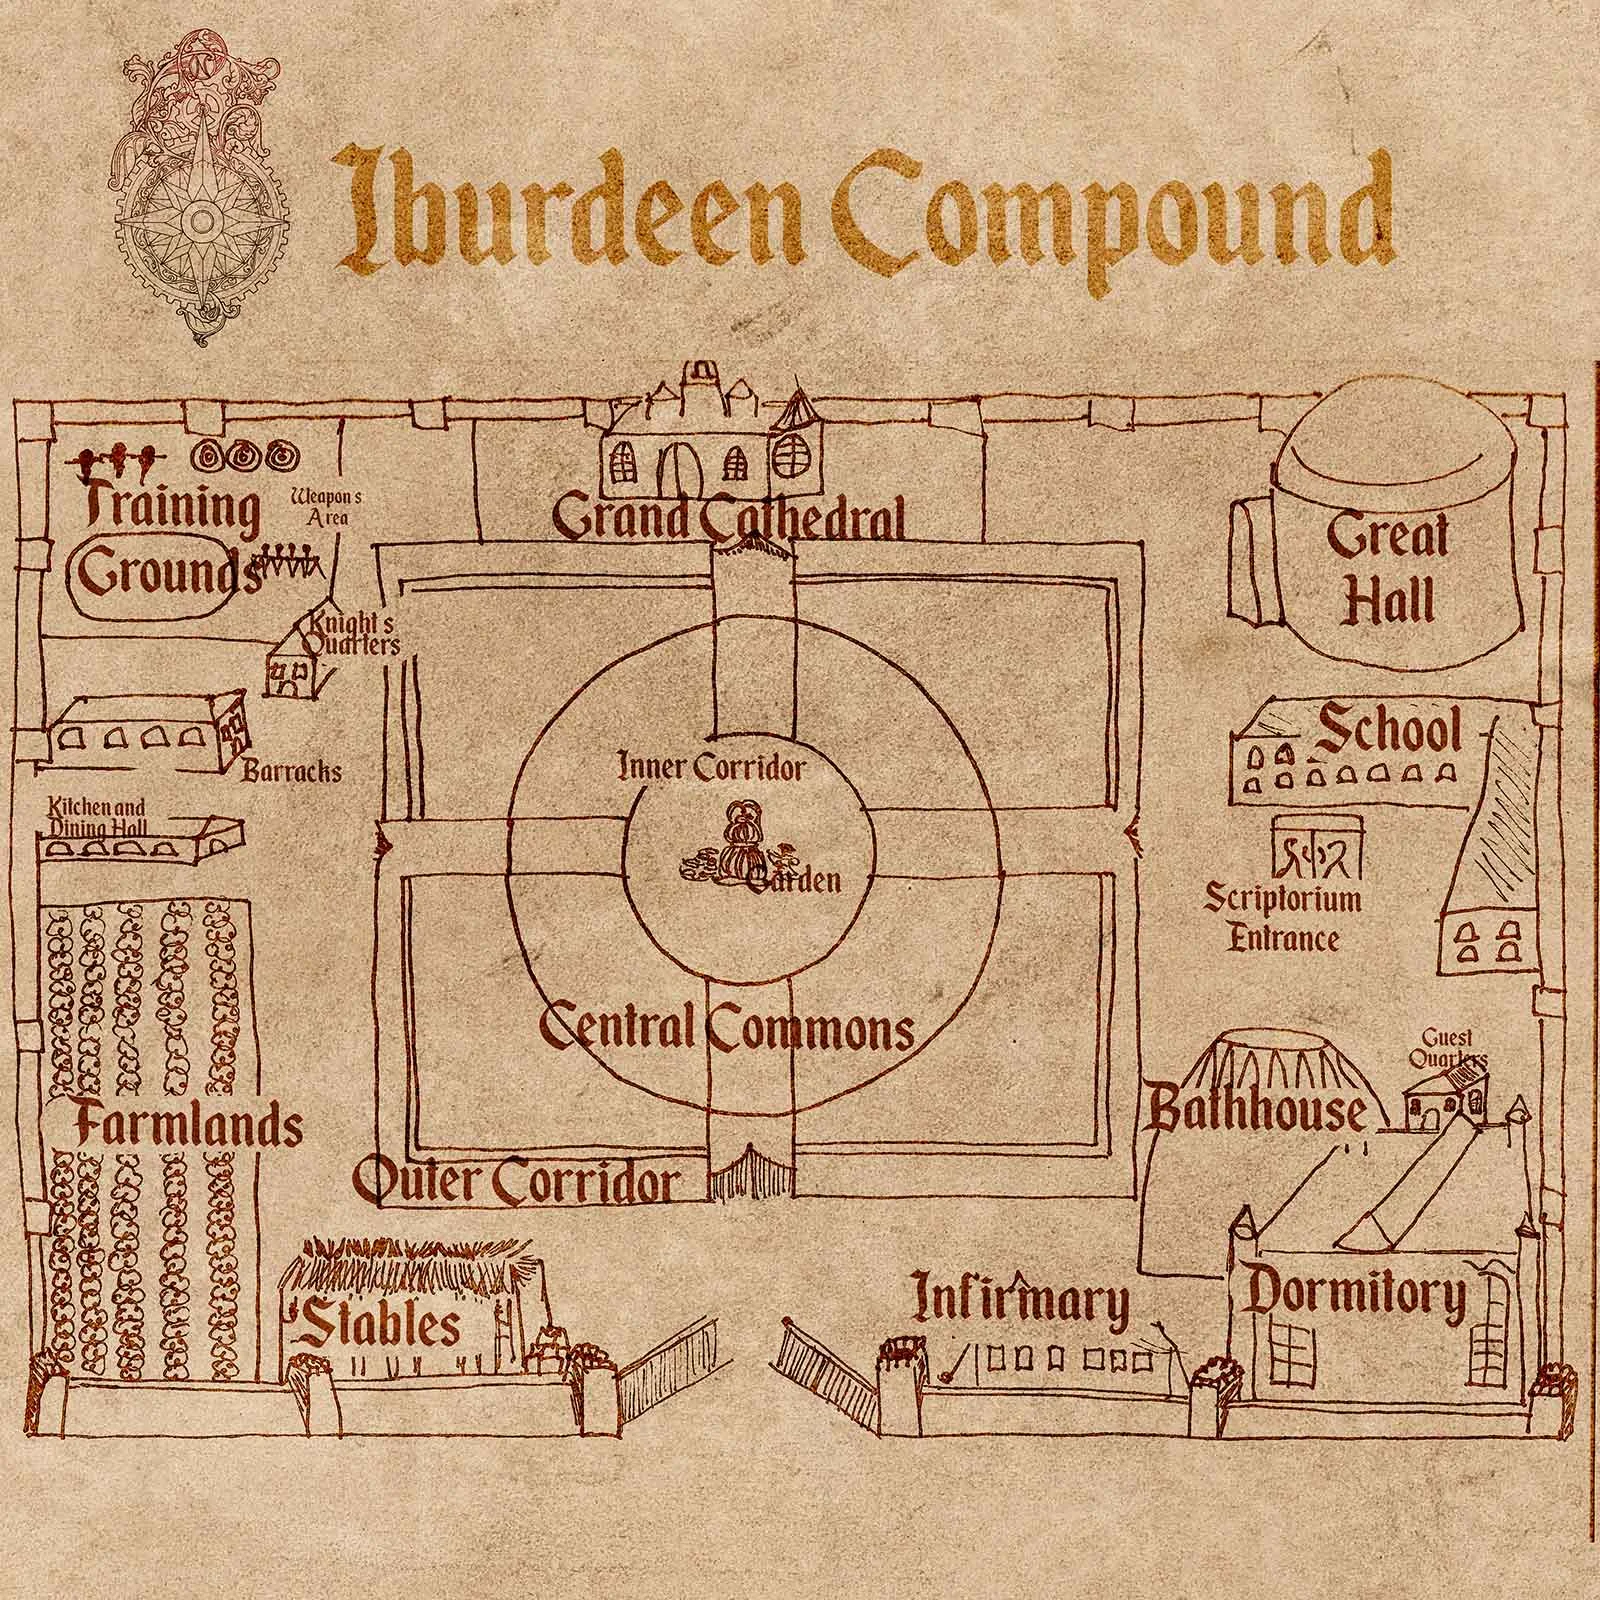 N
Iburdeen Compound
Training
Grounds
Weapons
Area
Grand Cathedral
Great
Hall
Knights
Quarters
Barracks
Kitchen and
Dining Hall
Inner Corridor
Garden
School
Scriptorium
Entrance
Central Commons
Guest
Quarters
Bathhouse
Farmlands
Outer Corridor
Stables
Infirmary
Dormitory